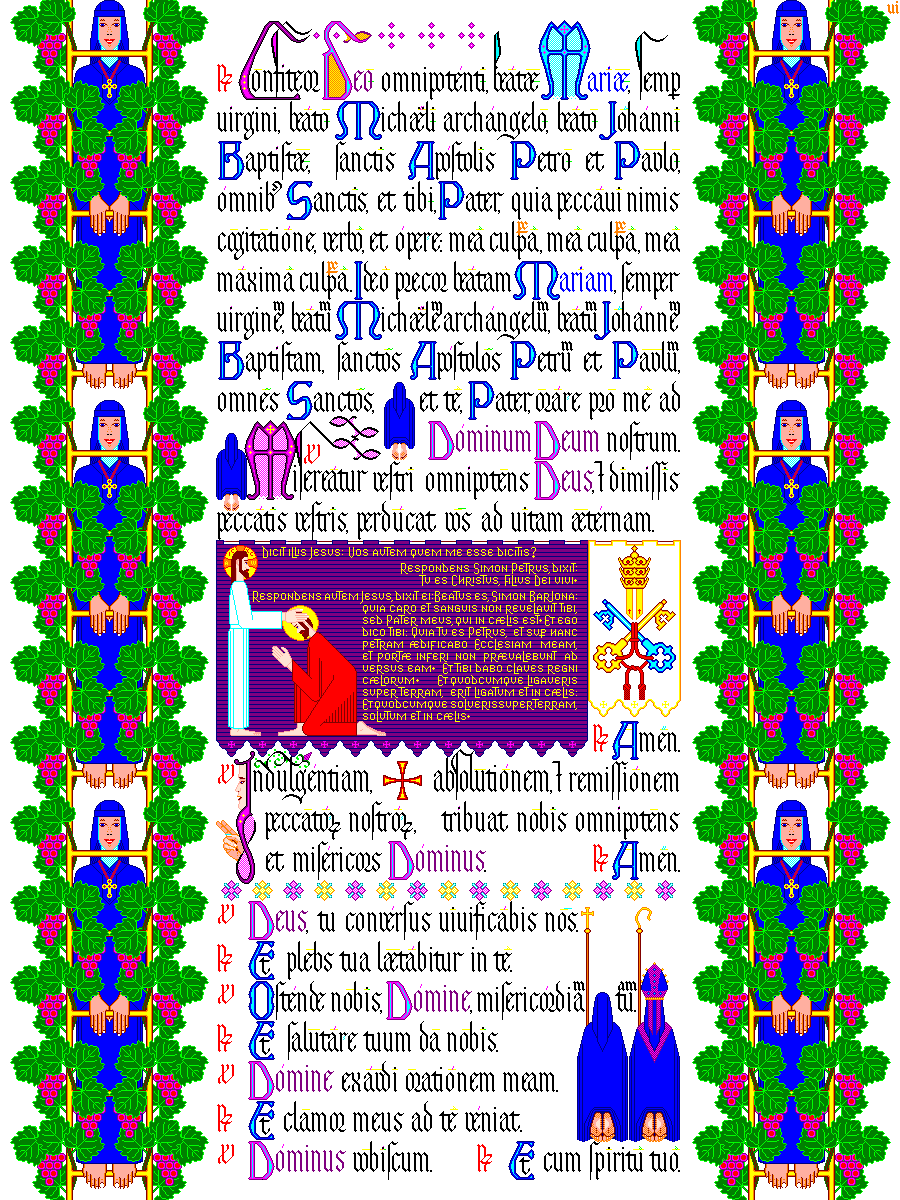 ui
℟ Confiteor Deo omnipotenti, beatæ Mariæ, semp
uirgini, beáto Michǽli archángelo, beáto Johánni
Baptístæ, sanctis Apóstolis Petro et Paulo,
ómnib⁹ Sanctis, et tibi, Pater, quia peccáui nimis
cogitatióne, verbo, et ópere: mea culpa, mea culpa, mea
máxima culpa. Ideo precor beatam Mariam, semper
uirginēm, beatūm Michælēm archángelūm, beatūm Johannēm
Baptistam, sanctōs Apóstolōs Petrūm et Paulūm,
omnēs Sanctōs, et te, Pater, orare pro me ad
Dóminum Deum nostrum.
℣ Misereatur vestri omnipotens Deus, ⁊ dimissis
peccátis vestris, perdúcat vos ad uitam ætérnam.
Dicit illis Jesus: Uos autem quem me esse dicitis?
Respondens Simon Petrus, dixit:
Tu es Christus, filius Dei uiui.
Respondens autem Jesus, dixit ei: Beatus es, Simon BarJona:
quia caro et sanguis non reuelauit tibi,
sed Pater meus, qui in cælis est. Et ego
dico tibi: Quia tu es Petrus, et sup hanc
petram ædificabo Ecclesiam meam,
et portæ inferi non præualebunt ad
uersus eam. Et tibi dabo claues regni
cælorum. Et quodcumque ligaueris
super terram, erit ligatum et in cælis:
et quodcumque solueris super terram,
solutum et in cælis.
℟ Amén.
℣ Indulgéntiam, ✠ absolutiónem, ⁊ remissiónem
peccatoꝝ nostroꝝ, tríbuat nobis omnípotens
et miséricors Dóminus. ℟ Amén.
℣ Deus, tu convérsus uiuificábis nos.
℟ Et plebs tua lætábitur in te.
℣ Osténde nobis, Dómine, misericórdiam tūam.
℟ Et salutáre tuum da nobis.
℣ Dómine exáudi oratiónem meam.
℟ Et clamor meus ad te véniat.
℣ Dóminus vobíscum. ℟ Et cum spíritu tuo.